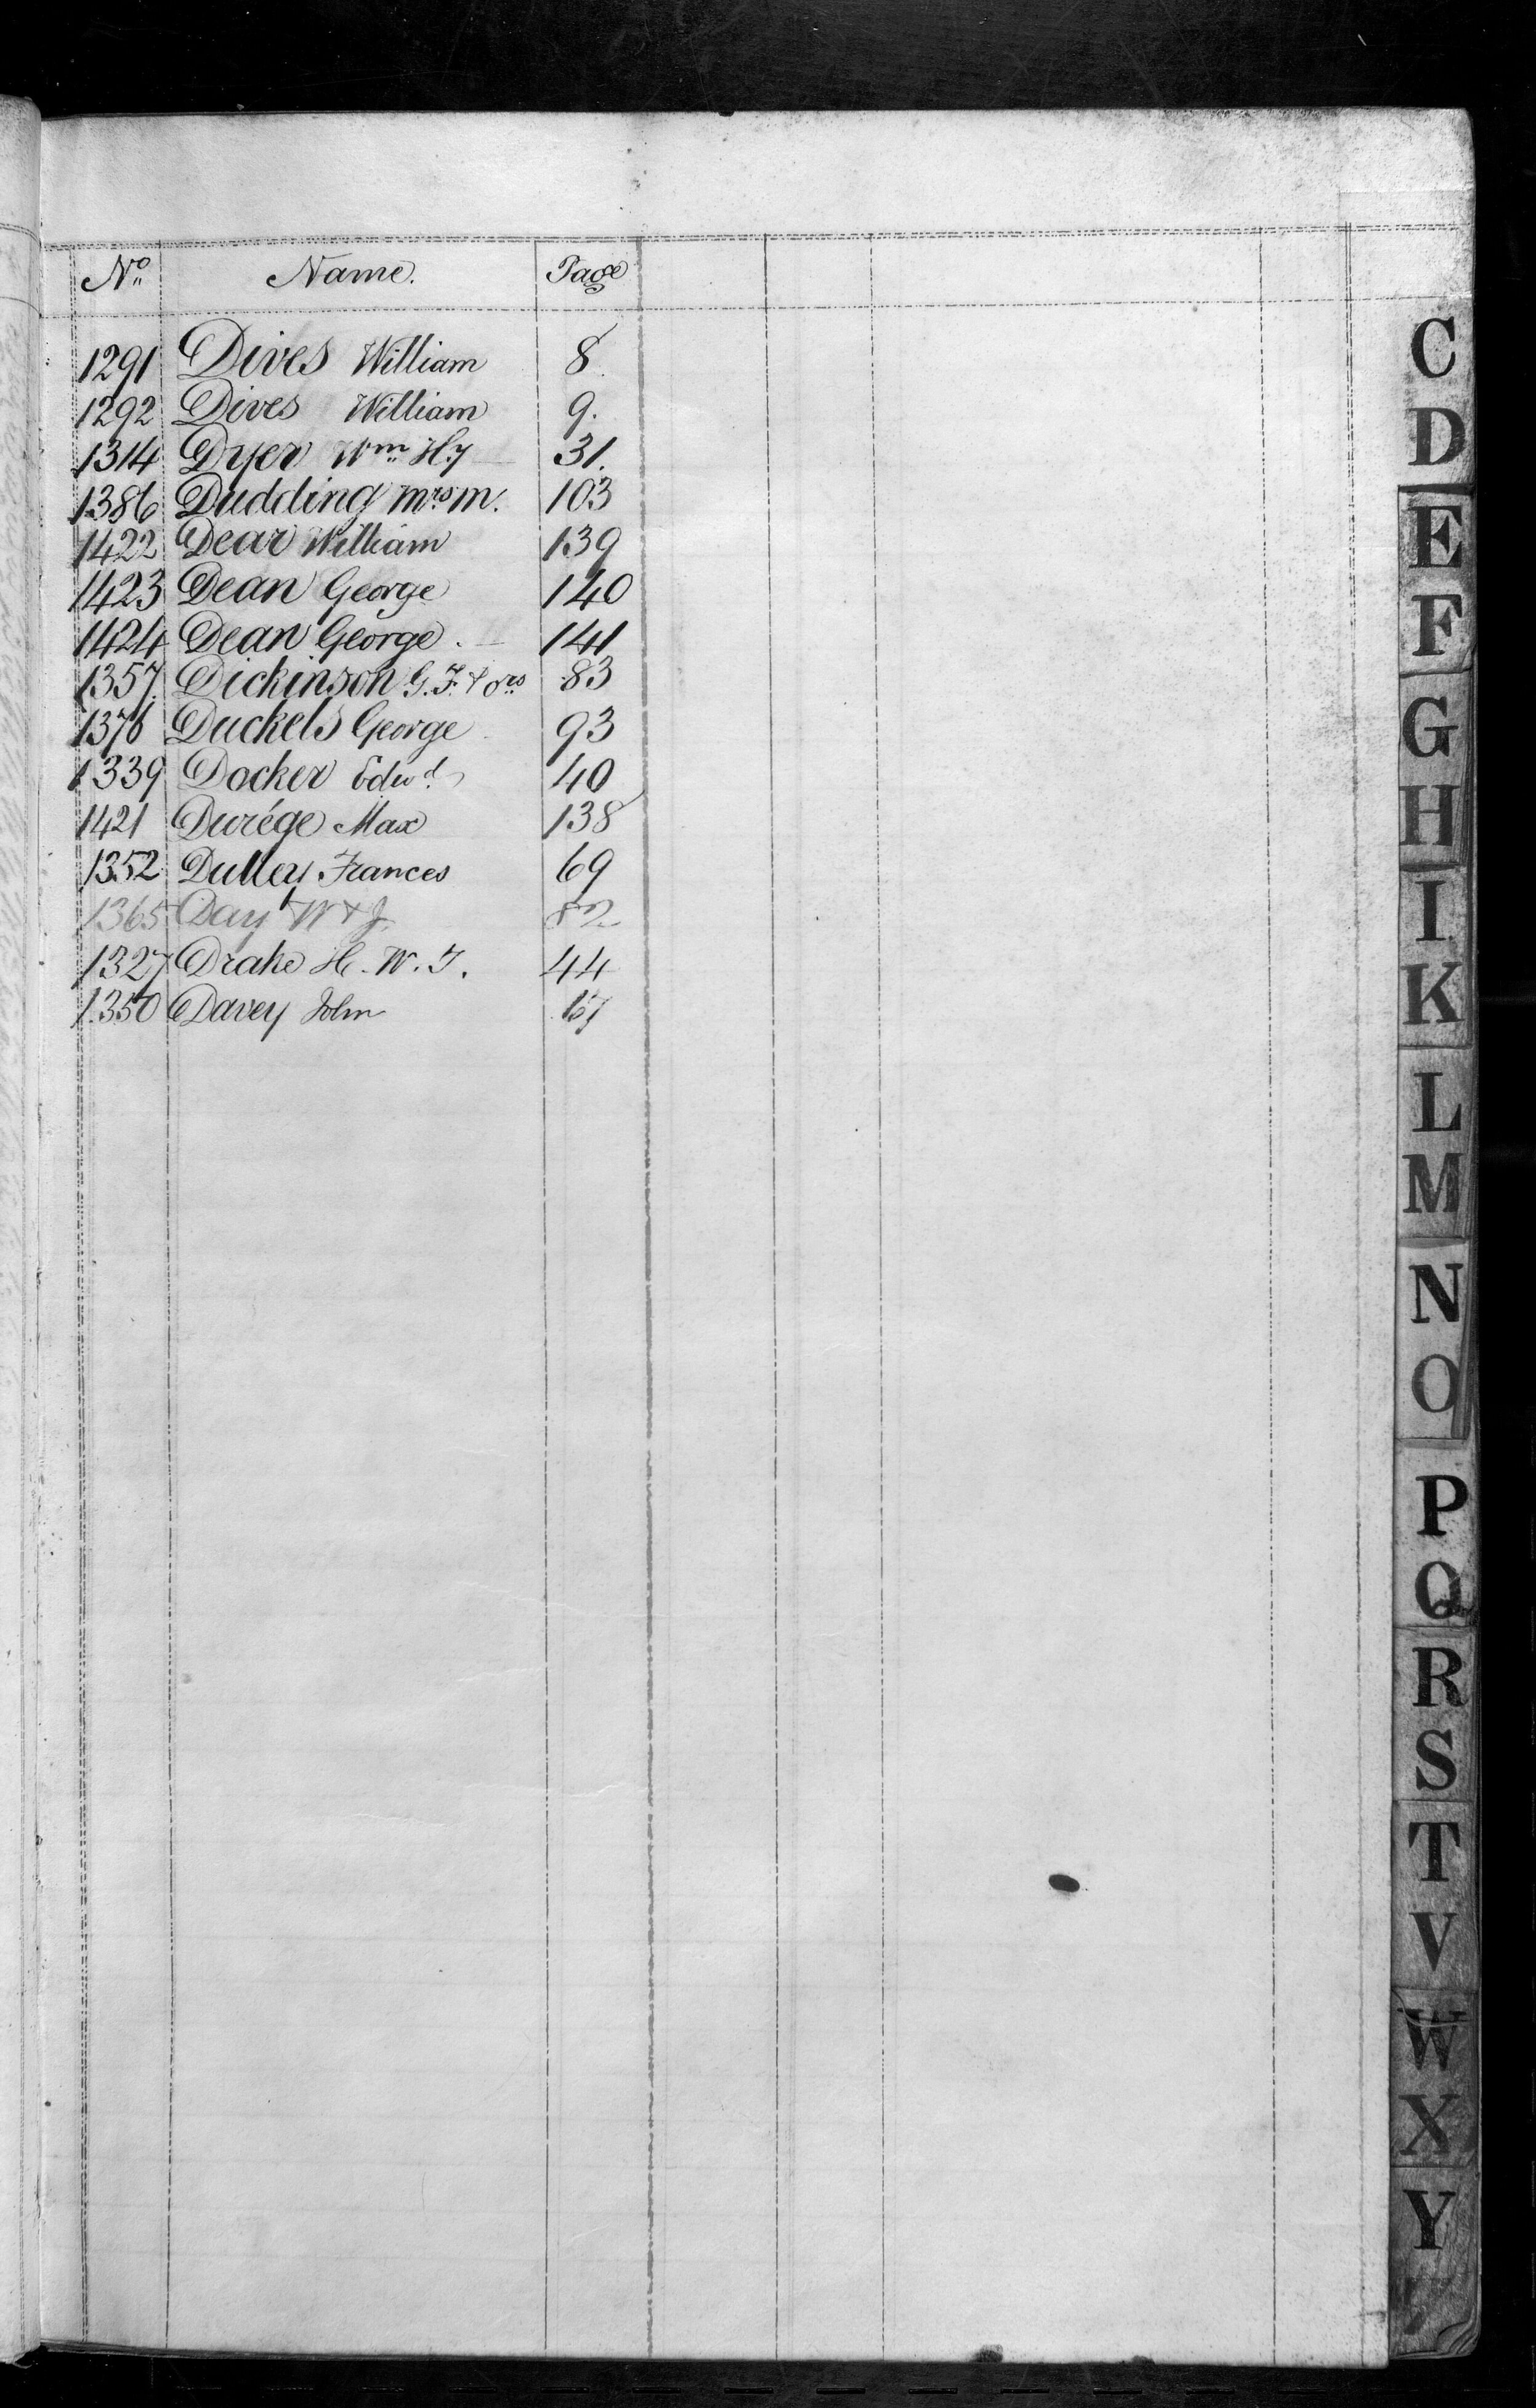 No Name. Page
1291 Dives William 8.
1292 Dives William 9.
1314 Dyer Wm Hy 31.
1386 Dudding Mrs M. 103
1422 Dear William 139
1423 Dean George 140
1424 Dean George. 141
1357. Dickinson G. F. & ors 83
1376 Duckels George 93
1339 Docker Edwd. 40
1421 Durége Max 138
1352 Dulley Frances 69
1365 Day W & J. 82
1327 Drake H. W. T. 44
1350 Davey John 67
C
D
E
F
G
H
I
K
L
M
N
O
P
Q
R
S
T
V
W
X
Y